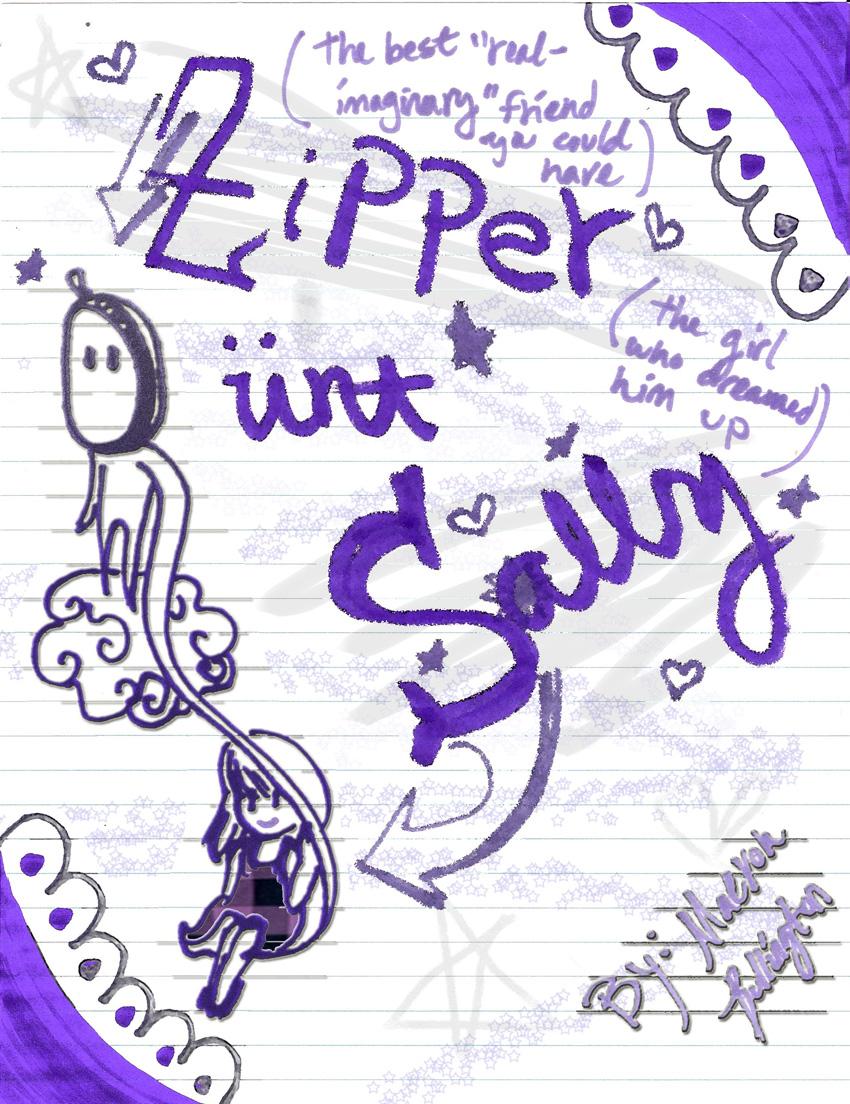 (the best "real-
imaginary" friend
ya could
have)
Zipper
(the girl
who dreamed
him up)
ünt
Sally
By: Maevon